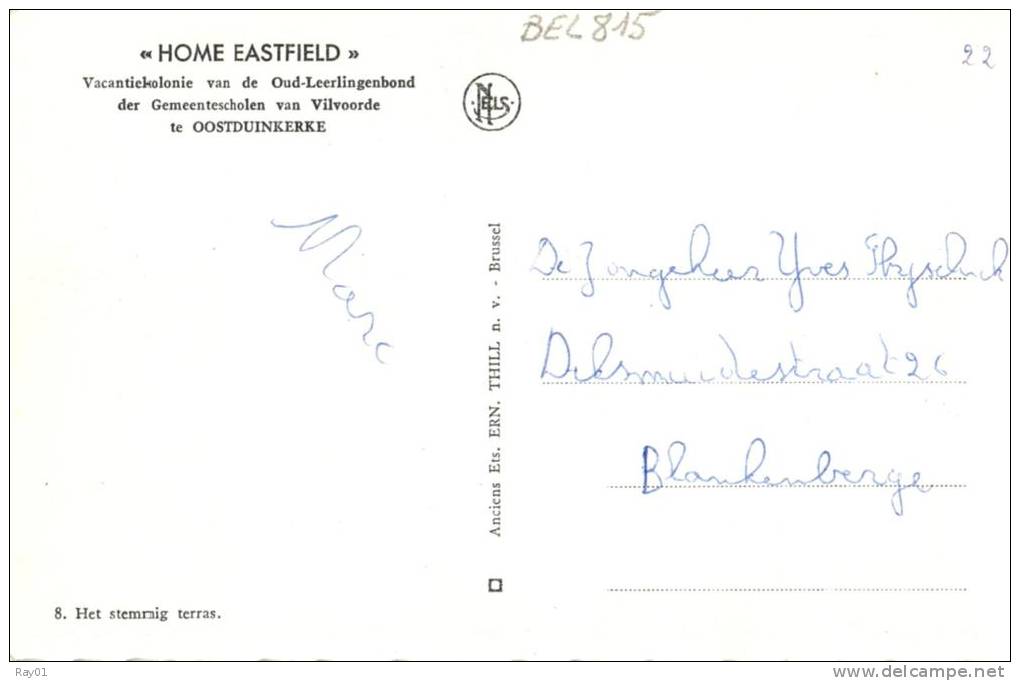 BEL 815
22
« HOME EASTFIELD »
Vacantiekolonie van de Oud-Leerlingenbond
der Gemeentescholen van Vilvoorde
te OOSTDUINKERKE
NELS
Marc
Anciens Ets. ERN. THILL n. v. - Brussel
De Jongeheer Yves
26
Blankenberge
8. Het stemmig terras.
Ray01
www.delcampe.net